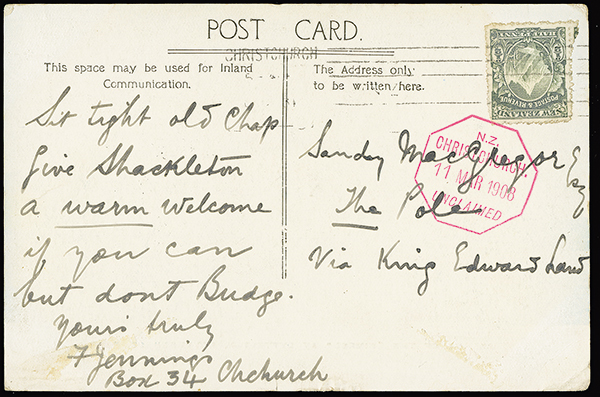 POST CARD.
CHRISTCHURCH
This space may be used for Inland
Communication.
The Address only
to be written here.
Sit tight old Chap
Give Shackleton
a warm welcome
if you can
but dont Budge.
Yours truly
F Jennings
Box 34 Chchurch
Sandy MacGregor Esq
The Pole
Via King Edward Land
N.Z.
CHRISTCHURCH.
11 MAR 1908
UNCLAIMED
NEW ZEALAND
POSTAGE & REVENUE
HALFPENNY